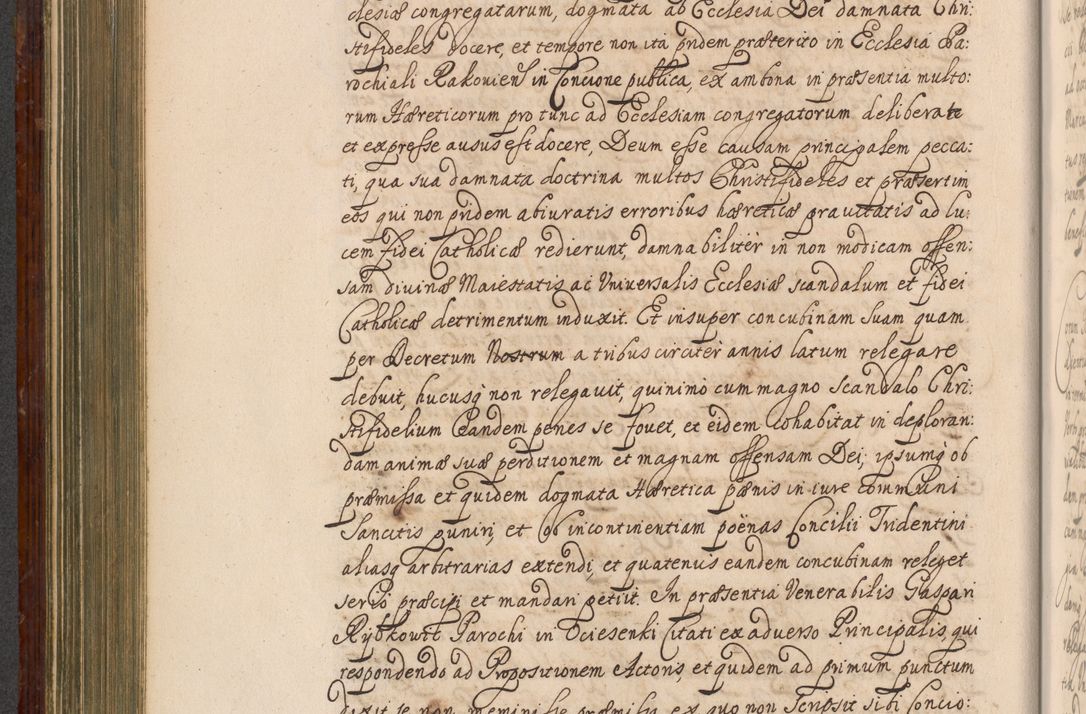 clesiæ congregatarum, dogmata ab Ecclesia Dei damnata Chri:
stifideles docere, et tempore non ita pridem præterito in Ecclesia Pa:
rochiali Rakoviens in Concione publica, ex ambona in præsentia multo:
rum Hæreticorum pro tunc ad Ecclesiam congregatorum deliberate
et expresse ausus est docere, Deum esse causam principalem pecca:
ti, qua sua damnata doctrina multos Christifideles et præsertim
eos qui non pridem abiuratis erroribus hæreticæ pravitatis ad lu:
cem fidei Catholicæ redierunt, damnabiliter in non modicam offen:
sam divinæ Maiestatis ac Universalis Ecclesiæ scandalum et fidei
Catholicæ detrimentum induxit. Et insuper concubinam suam quam
per Decretum Nostrum a tribus circiter annis latum relegare
debuit, hucusq non relegavit, quinimo cum magno scandalo Chri:
stifidelium Eandem penes se fovet, et eidem cohabitat in deploran:
dam animæ suæ perditionem et magnam offensam Dei; ipsumq ob
præmissa et quidem dogmata Hæretica pænis in iure communi
sancitis puniri, et ob incontinentiam poënas Concilii Tridentini
aliasq arbitrarias extendi, et quatenus eandem concubinam releget
serio præcipi et mandari petiit. In præsentia Venerabilis Gaspari
Rybkowit Parochi in Ociesenki Citati ex adverso Principalis, qui
respondendo ad Propositionem Actoris, et quidem ad primum punctum
dixit se non meminisse præmissa, ex quo non scripsit sibi concio: